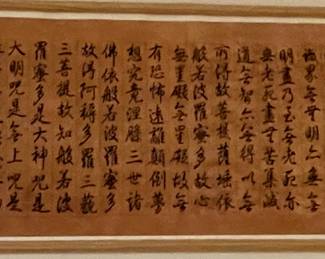 識界無無明亦無無
明盡乃至無老死亦
無老死盡無苦集滅
道無智亦無得以無
所得故菩提薩埵依
般若波羅蜜多故心
無罣礙無罣礙故無
有恐怖遠離顛倒夢
想究竟涅槃三世諸
佛依般若波羅蜜多
故得阿耨多羅三藐
三菩提故知般若波
羅蜜多是大神咒是
大明咒是無上咒是